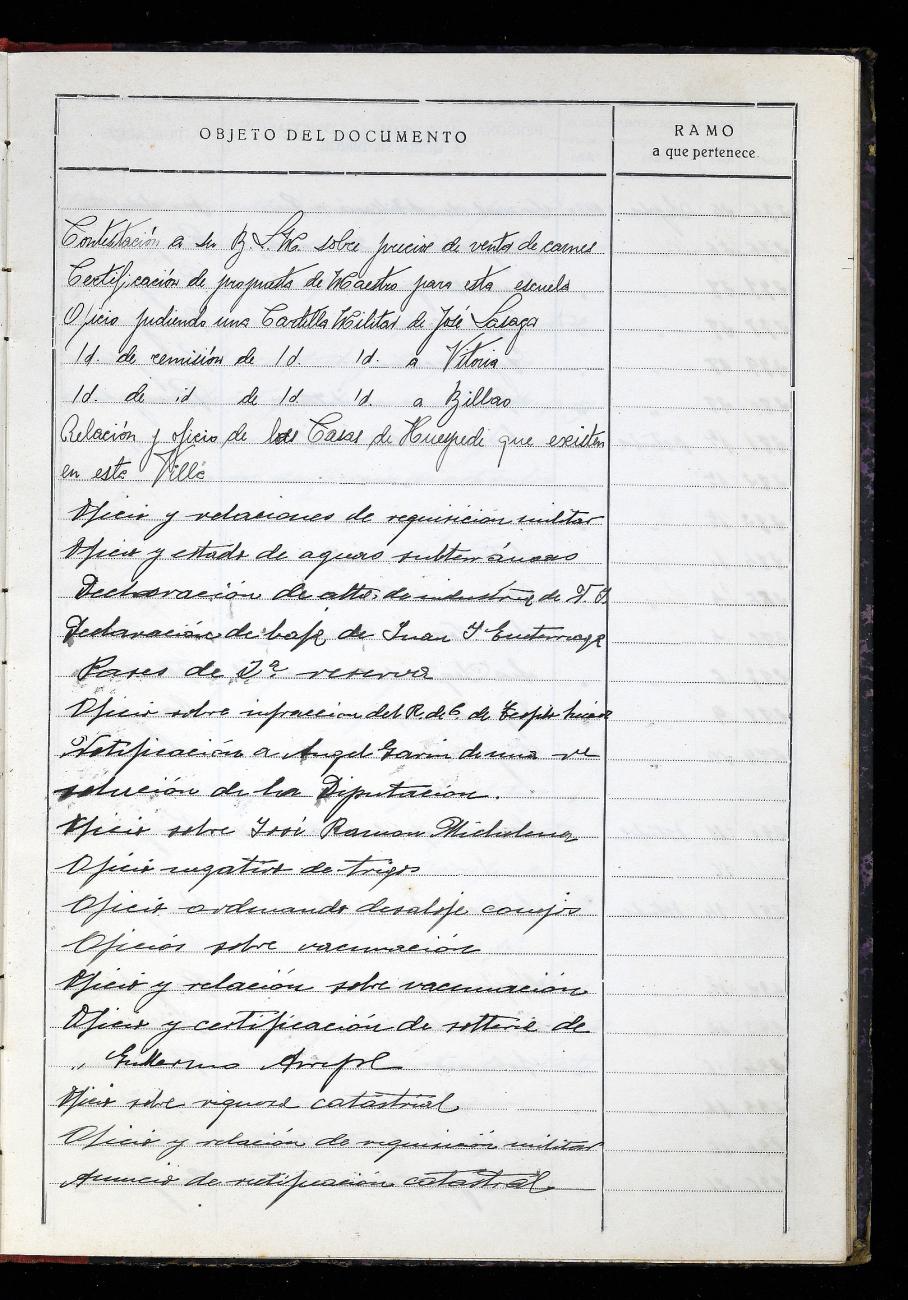 OBJETO DEL DOCUMENTO
RAMO
a que pertenece
Contestación a su B. L. M. sobre precios de venta de carnes
Certificación de propuesta de Maestro para esta escuela
Oficio pidiendo una Cartilla Militar de Jose Lasaga
Id. de remisión de Id. Id. a Vitoria
Id. de id de Id. Id. a Bilbao
Relación y oficio de las Casas de Huespede que existen
en esta Villa
Oficio y relaciones de requisicion militar
Oficio y estado de aguas subterráneas
Declaración de alta de industria de
Declaración de baja de Juan I
Pases de 2ª reserva
Oficio sobre infraccion del R. de C. de
Notificación a Angel Garin de una re
solución de la Diputación.
Oficio sobre José Ramon Michelena
Oficio negativo de trigos
Oficio ordenando desaloje conejos
Oficios sobre vacunación
Oficio y relación sobre vacunación
Oficio y certificación de solteria de
" Guillermo
Oficio sobre riqueza catastral
Oficio y relación de requisición militar
Anuncio de retificación catastral